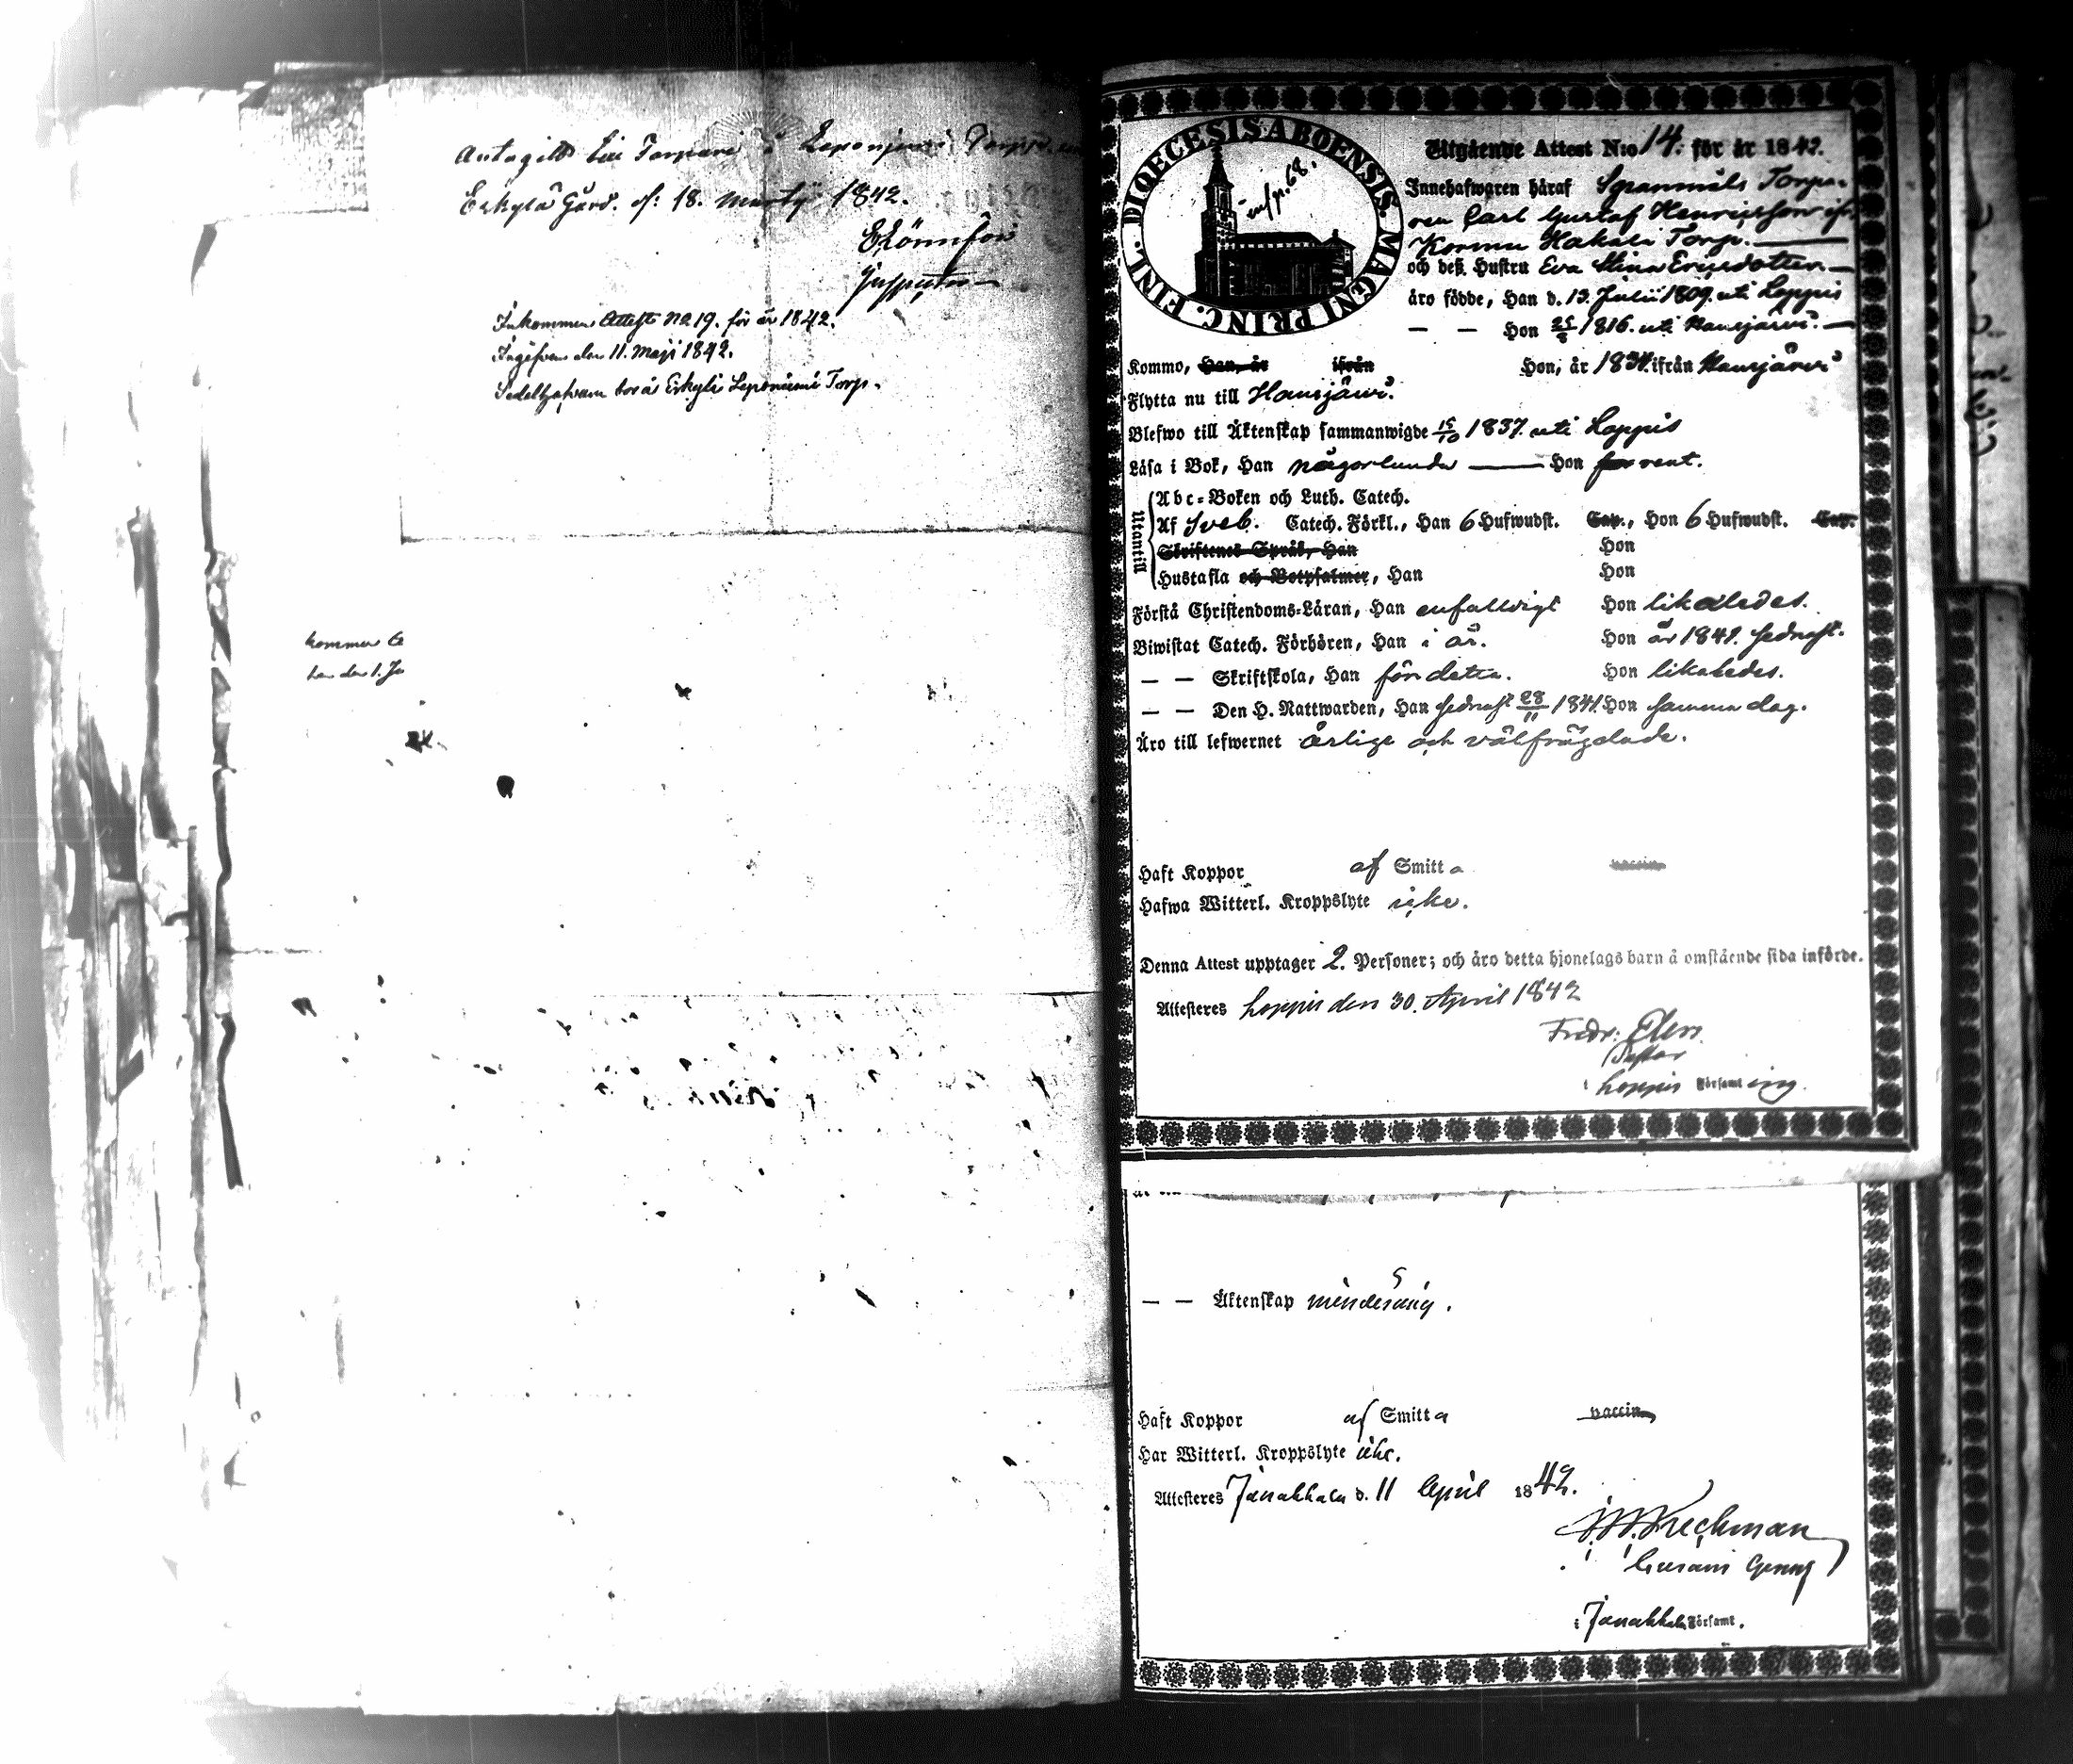 Antagits till Torpare å Leponiemi Torp
Erkylä Gård. d: 18. Martij 1842.
Inspector
Inkommen Attest No 19. för år 1842.
Ingifven den 11. Maji 1842.
Sedelhafvarn bor å Erkylä Leponiemi Torp.
kommen
den 1. Ja
DIOECESIS ABOENSIS. MAGNI PRINC. FINL.
p. 68.
Utgående Attest N:o 14. för år 1842.
Innehafwaren häraf Torpa-
ren Carl Gustaf Henricsson ifr.
Kormu Hakala Torp.
och deß Hustru Eva Stina Ericsdotter
äro födde, Han d. 13. Julii 1809. uti Loppis
— — Hon 25/5 1816. uti Hausjärvi.
Kommo, Han, år ifrån Hon, år 1837. ifrån Hausjärvi
Flytta nu till Hausjärvi.
Blefwo till Äktenskap sammanwigde 15/10 1837. uti Loppis
Läsa i Bok, Han någorlunda Hon rent.
Utantill
Abc-Boken och Luth. Catech.
Af Sveb. Catech. Förkl., Han 6 Hufwudst. Cap., Hon 6 Hufwudst. Cap.
Skriftenes Språk, Han Hon
Hustafla och Botpsalmer, Han Hon
Förstå Christendoms-Läran, Han enfaldigt Hon likaledes.
Biwistat Catech. Förhören, Han i år. Hon år 1841. sednast.
— — Skriftskola, Han för detta. Hon likaledes.
— — Den H. Nattwarden, Han sednast 28/11 1841. Hon samma dag.
Äro till lefwernet ärlige och välfrägdade.
Haft Koppor af Smitta vaccin
Hafwa Witterl. Kroppslyte icke.
Denna Attest upptager 2. Personer; och äro detta hjonelags barn å omstående sida införde.
Attesteres Loppis den 30. April 1842
Fredr.
Pastor
i Loppis Församling.
— — Äktenskap mindesårig.
Haft Koppor af Smitta vaccin
Har Witterl. Kroppslyte icke.
Attesteres Janakkala d. 11 April 1842.
i Janakkala Församl.